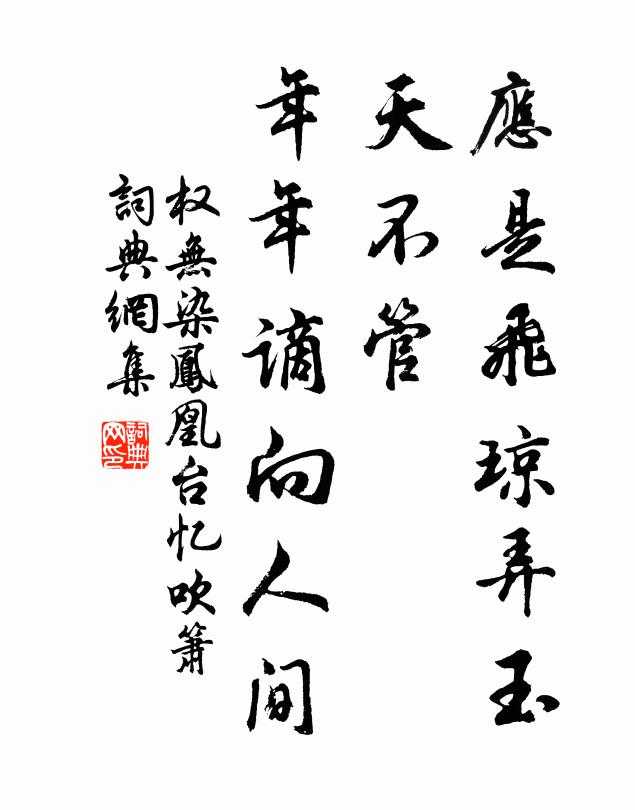 應是飛琼弄玉
天不管
年年謫向人间
权無染鳳凰台忆吹箫
詞典網集
詞典
网印